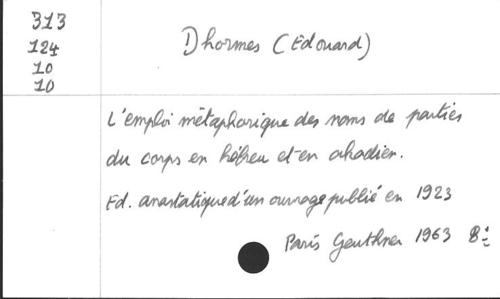 313
124
10
10
Dhormes (Edouard)
L'emploi métaphorique des noms de parties
du corps en hébreu et en akadien.
Ed. anastatique d'un ouvrage publié en 1923
Paris Geuthner 1963 8°